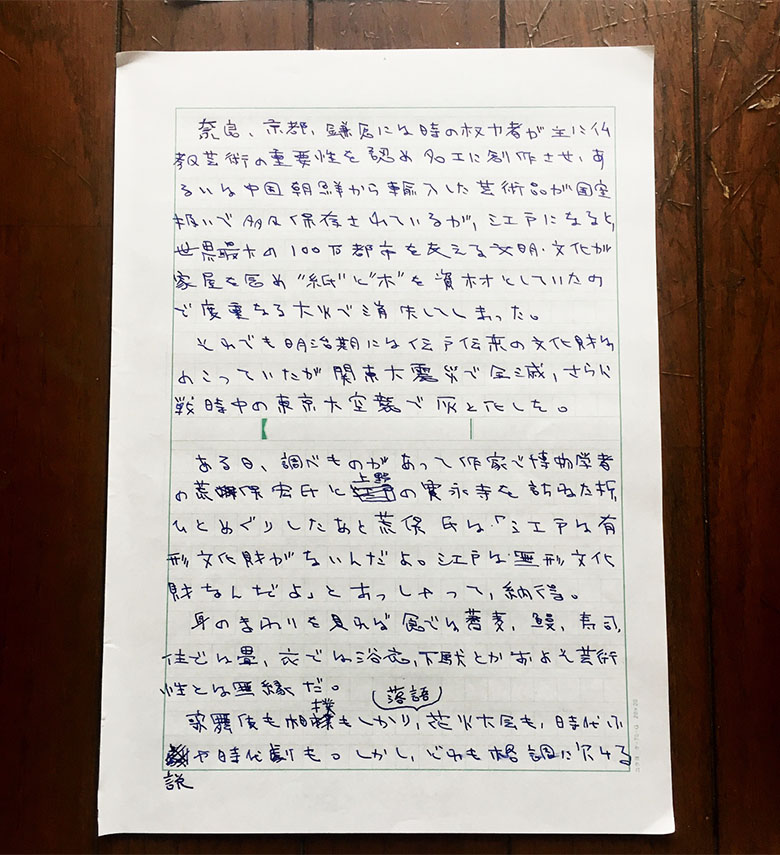 奈良、京都、鎌倉には時の权力者が主に仏
教芸術の重要性を認め名工に創作させ、あ
るいは中国朝鮮から輸入した芸術品が国宝
扱いで多々保存されているが、江戸になると、
世界最大の100万都市を支える文明・文化が
家屋を含め"紙"と"木"を資材としていたの
で度重なる大火で消失してしまった。
それでも明治期には江戸伝来の文化財も
のこっていたが関東大震災で全滅,さらに
戦時中の東京大空襲で灰と化した。
ある日、調べものがあって作家で博物学者
の荒俣宏氏に上野の寛永寺を訪ねた折,
ひとめぐりしたあと荒俣氏は、「江戸は有
形文化財がないんだよ。江戸は無形文化
財なんだよ」とおっしゃって,納得。
身のまわりを見れば食では蕎麦,鰻,寿司,
住では畳、衣では浴衣,下駄とかおよそ芸術
性とは無縁だ。
落語
歌舞伎も相撲もしかり,花火大会も,時代小
説や時代劇も。しかし,どれも格調に欠ける